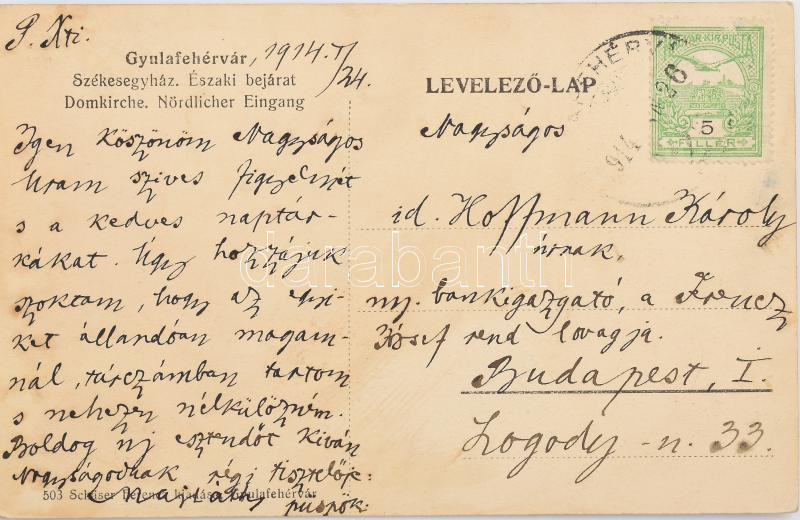 P. Xti.
Gyulafehérvár, 1914. I/24.
Székesegyház. Északi bejárat
Domkirche. Nördlicher Eingang
Igen köszönöm Nagyságos
Uram szives figyelmét
s a kedves naptár-
kákat. Úgy hozzájuk
szoktam, hogy az egyi-
ket állandóan magam-
nál, tárczámban tartom
s nehezen nélkülözném.
Boldog uj esztendőt kiván
Nagyságodnak régi tisztelője:
püspök.
503 Schäser Ferencz kiadása, Gyulafehérvár
LEVELEZŐ-LAP
Nagyságos
id. Hoffmann Károly
úrnak,
ny. bankigazgató, a Ferencz
József rend lovagja.
Budapest, I.
Logody-u. 33.
MAGYAR KIR. POSTA
5
FILLÉR
914
26
darabanth